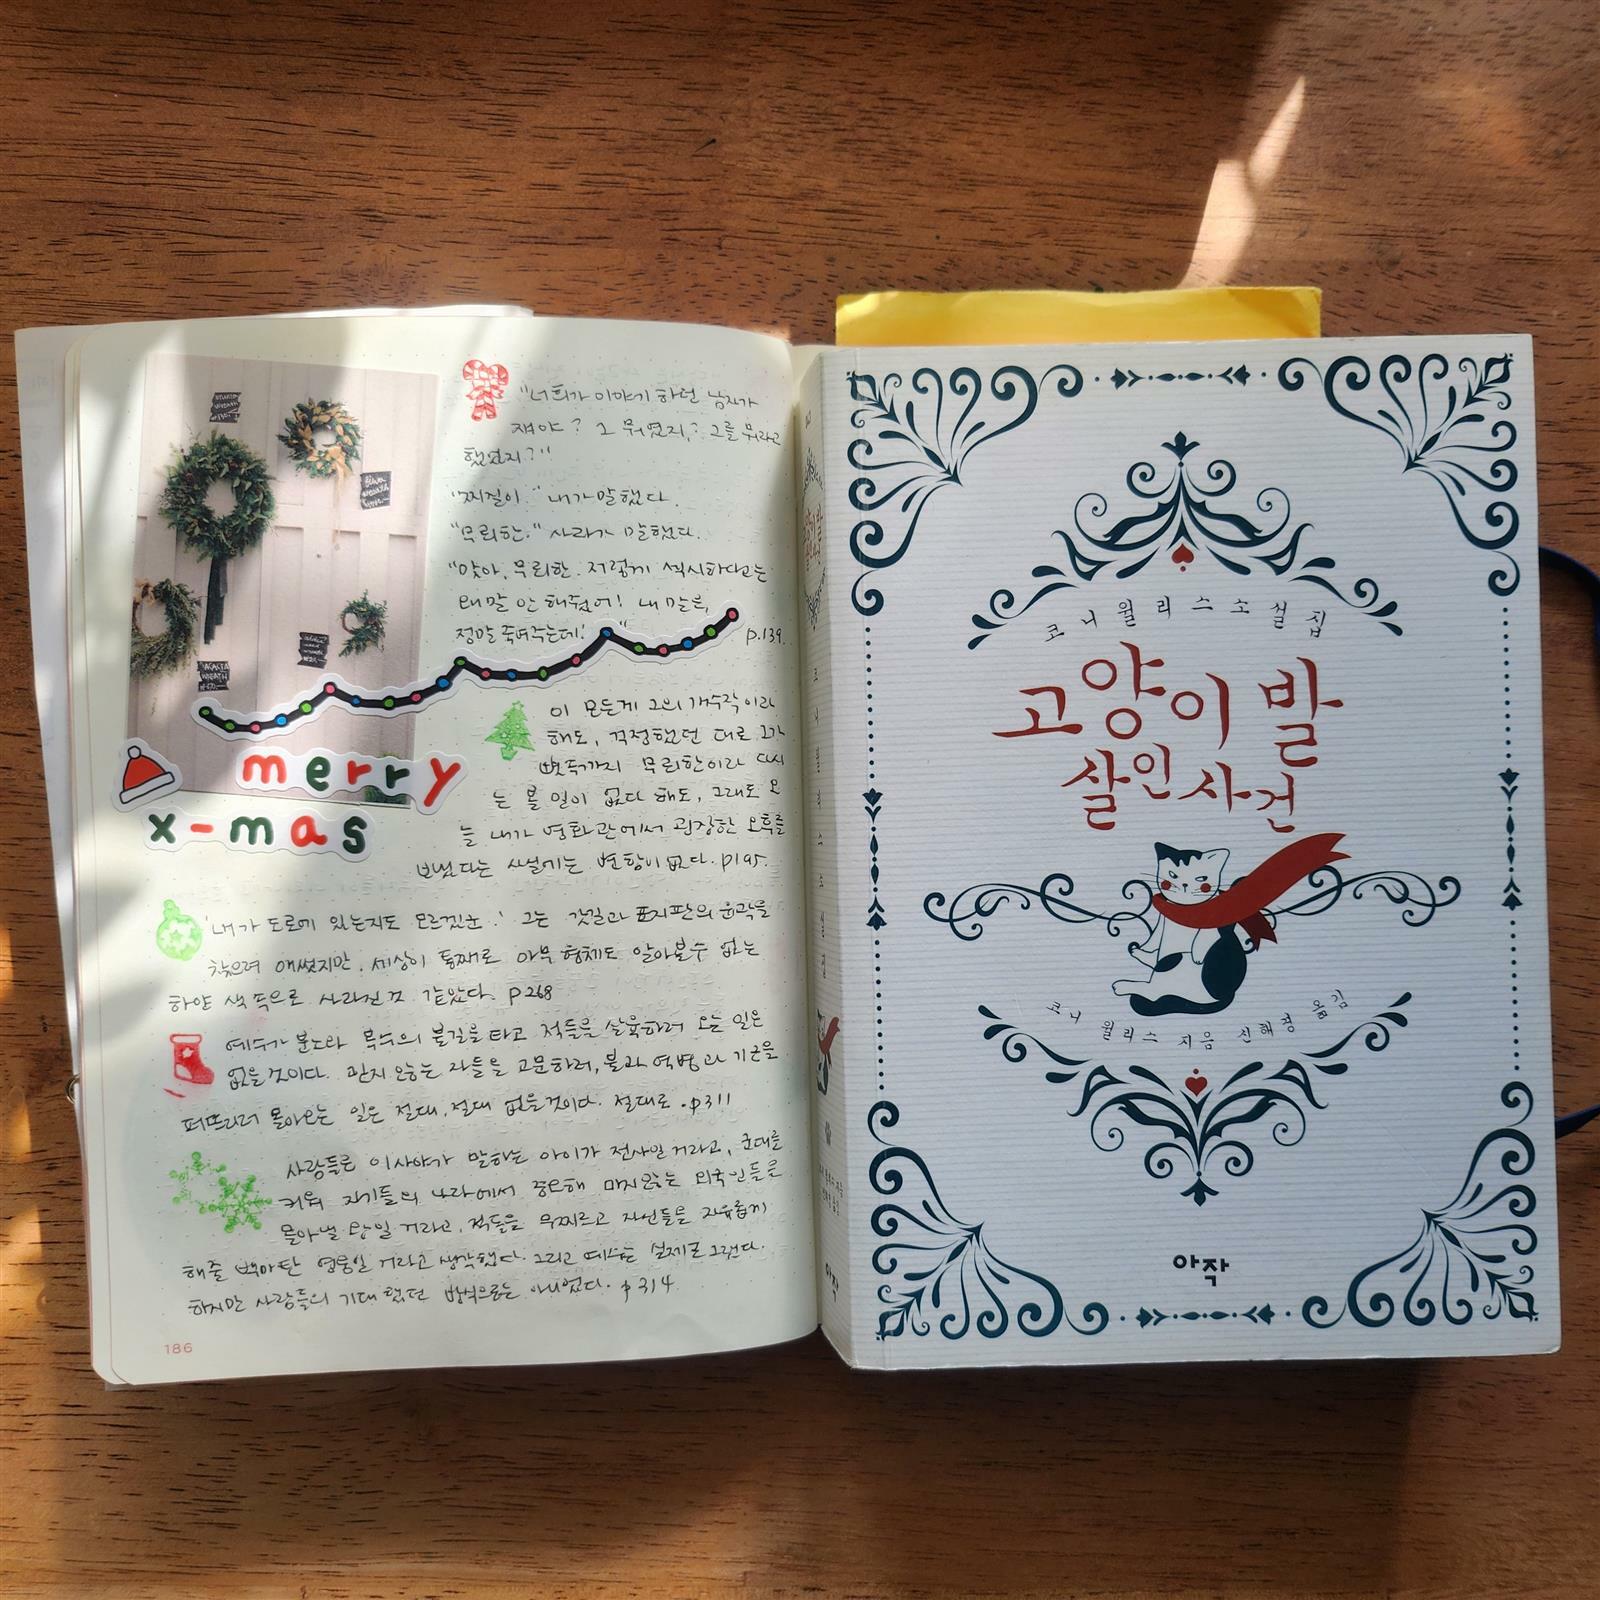 "너희가 이야기 하던 남자가
쟤야? 그 뭐였지? 그를 뭐라고
했었지?"
"찌질이." 내가 말했다.
"무뢰한." 사라가 말했다.
"맞아, 무뢰한. 저렇게 섹시하다고는
왜 말 안 해줬어! 내 말은,
정말 죽여주는데! " p.139.
merry
x-mas
이 모든게 그의 개수작이라
해도, 걱정했던 대로 그가
뼛속까지 무뢰한이라 다시
는 볼 일이 없다 해도, 그래도 오
늘 내가 영화관에서 굉장한 오후를
보냈다는 사실에는 변함이 없다. p195.
'내가 도로에 있는지도 모르겠군.' 그는 갓길과 표지판의 윤곽을
찾으려 애썼지만. 세상이 통째로 아무 형체도 알아볼수 없는
하얀 색 속으로 사라진 것 같았다. p268
예수가 분노와 복수의 불길을 타고 적들을 살육하러 오는 일은
없을 것이다. 믿지 않는 자들을 고문하러, 불과 역병과 기근을
퍼뜨리러 돌아오는 일은 절대, 절대 없을 것이다. 절대로. p311
사람들은 이사야가 말하는 아이가 전사일 거라고, 군대를
키워 자기들의 나라에서 증오해 마지않는 외국인들을
몰아낼 왕일 거라고, 적들을 무찌르고 자신들을 자유롭게
해줄 백마탄 영웅일 거라고 생각했다. 그리고 예수는 실제로 그랬다.
하지만 사람들의 기대했던 방식으로는 아니었다. p314.
186
코니 윌리스 소설집
고양이 발
살인사건
코니 윌리스 지음 신해경 옮김
아작
아작